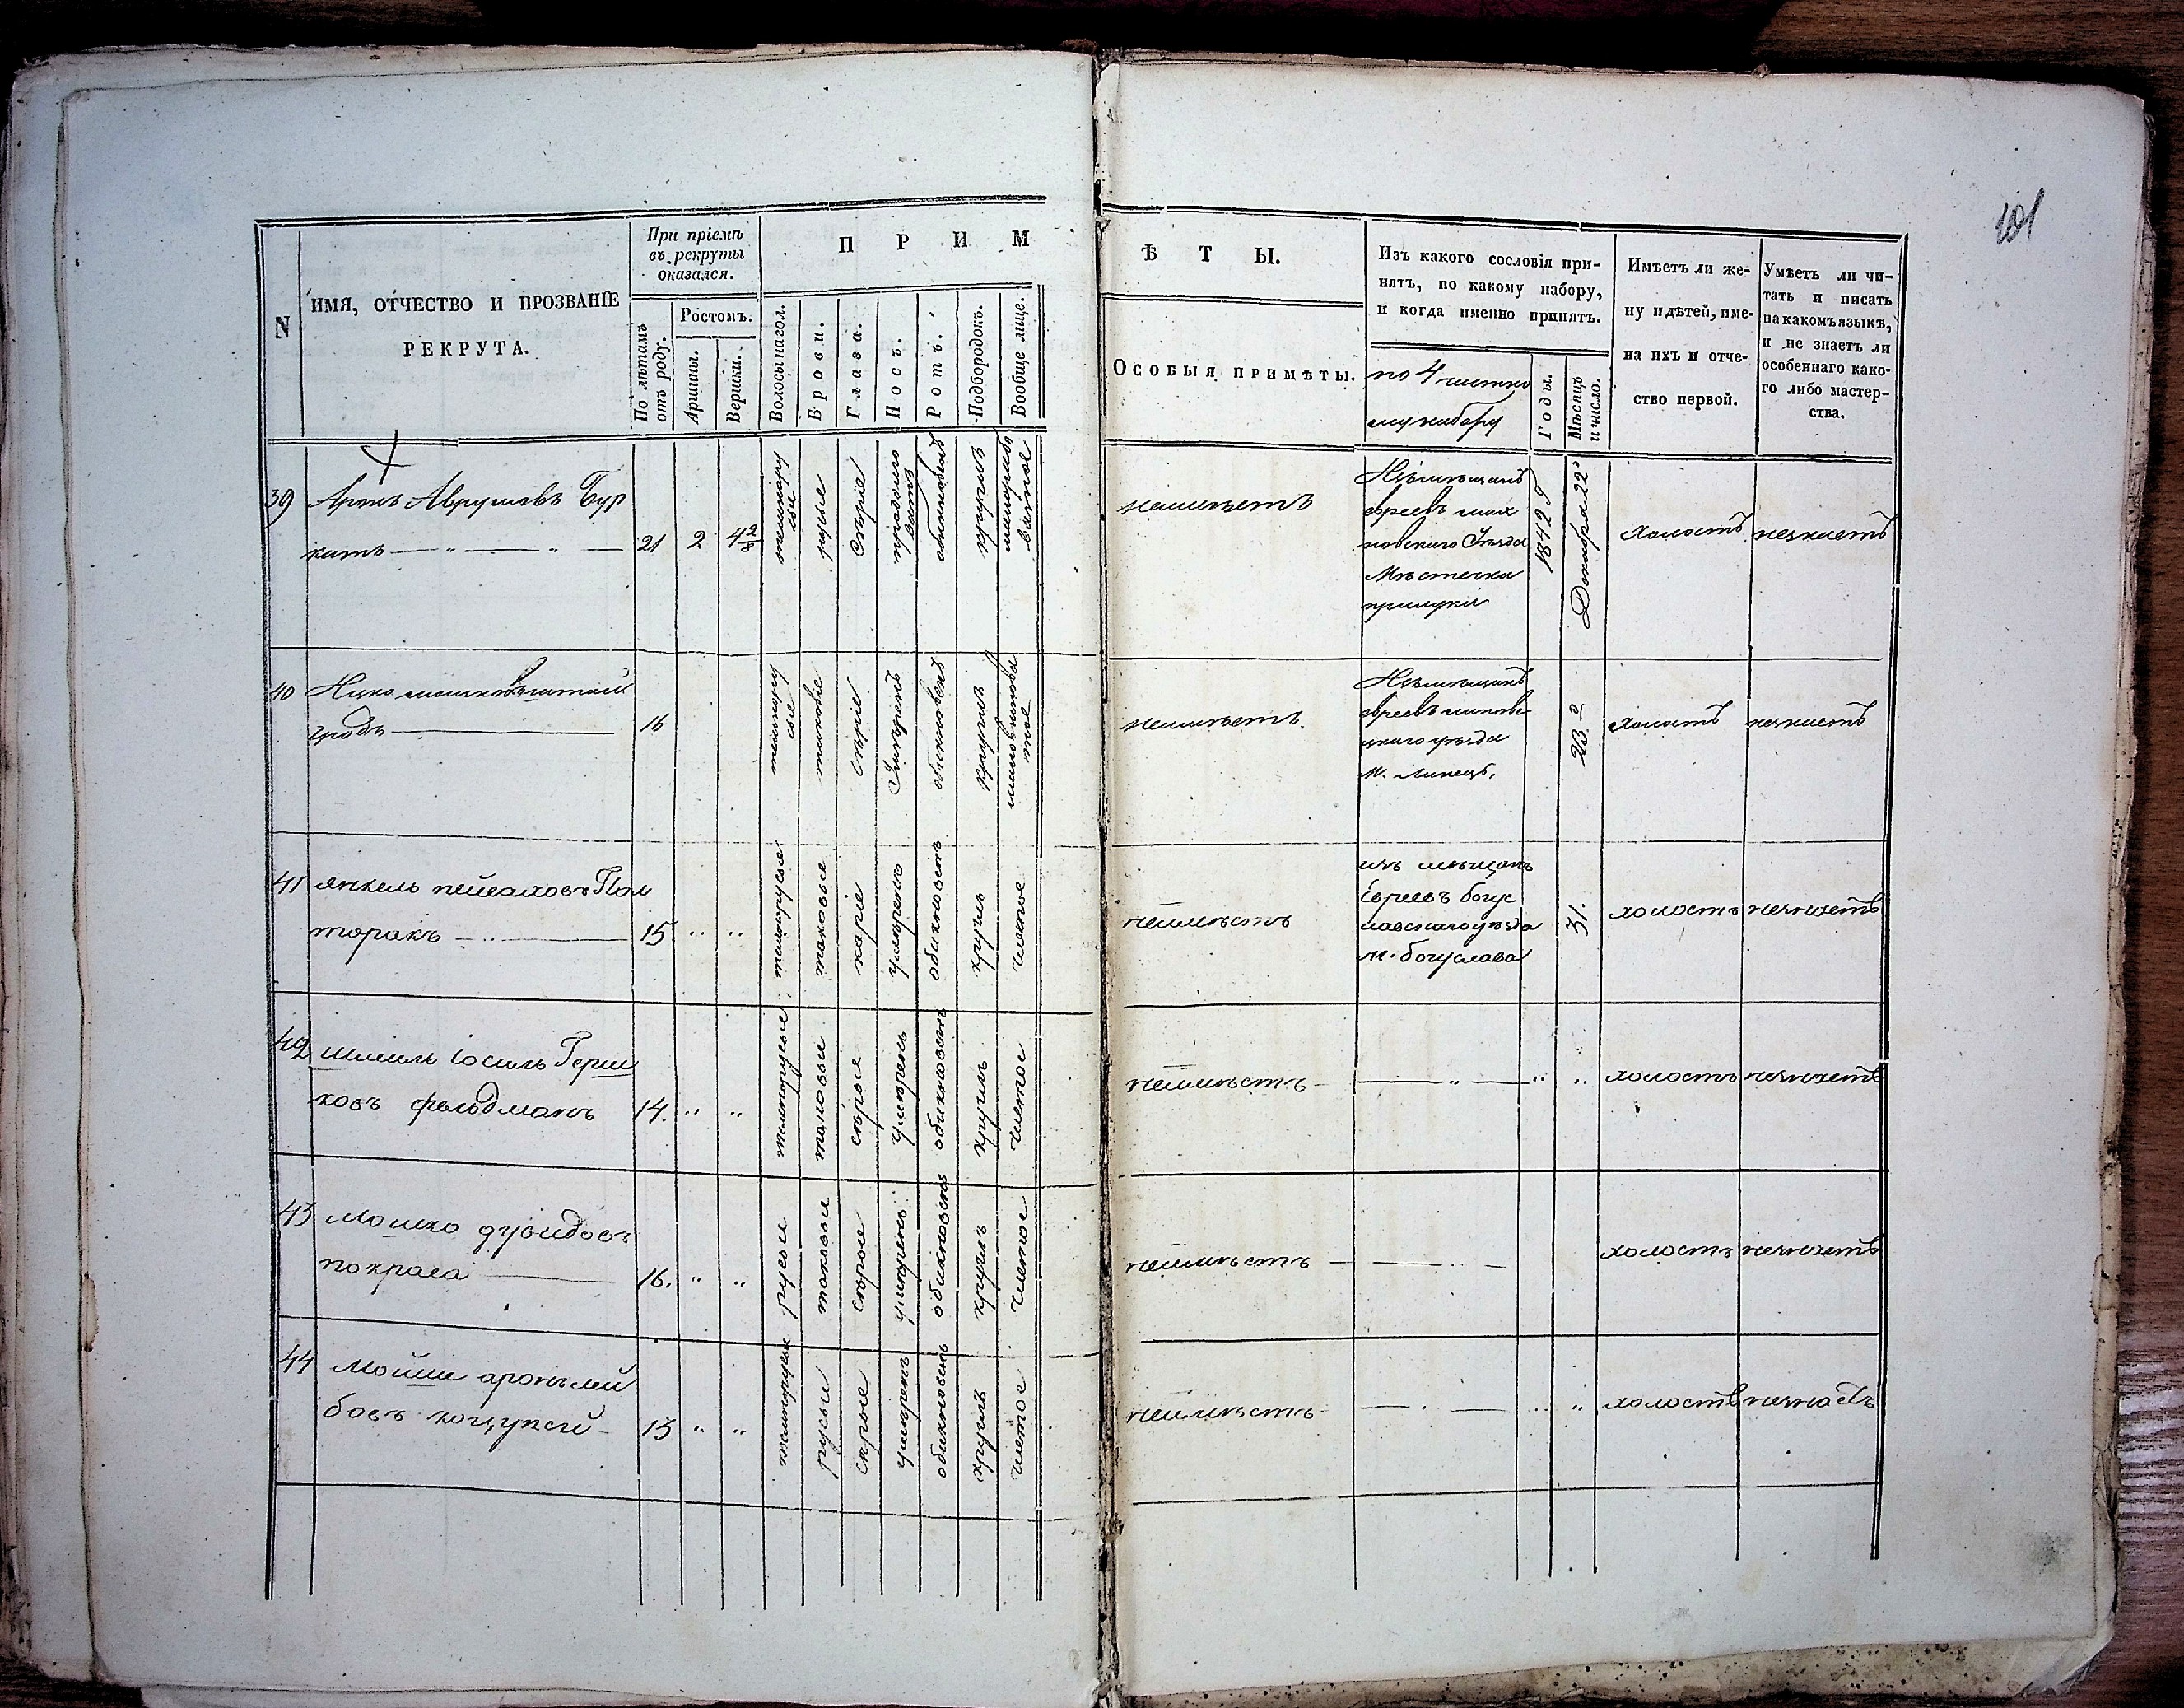 101
N
ИМЯ, ОТЧЕСТВО И ПРОЗВАНІЕ
РЕКРУТА.
При пріемѣ
въ рекруты
оказался.
По лѣтамъ
отъ роду.
Ростомъ.
Аршины.
Вершки.
П Р И М
Волосы на гол.
Брови.
Глаза.
Носъ.
Ротъ.
Подбородокъ.
Вообще лице.
Ѣ Т Ы.
Особыя примѣты.
Изъ какого сословія при-
нятъ, по какому набору,
и когда именно принятъ.
по 4 частно
му набору
Годы.
Мѣсяцъ
и число.
Имѣетъ ли же-
ну и дѣтей, име-
на ихъ и отче-
ство первой.
Умѣетъ ли чи-
тать и писать
на какомъ языкѣ,
и не знаетъ ли
особеннаго како-
го либо мастер-
ства.
39
Аронъ Аврумовъ Бур
21
2
4 2/8
темнору
сые
русые
Сѣріе
продолго
ватъ
обыкновенъ
круглъ
неимѣетъ
Изъ мѣщанъ
евреевъ
Уѣзда
Мѣстечка
прилуки
1842 г
Декабря 22
Холостъ
незнаетъ
40
градъ
16
темнору
сые
таковіе
Сѣріе
Умѣренъ
обыкновенъ
круглъ
неимѣетъ.
Изъ мѣщанъ
евреевъ липове
цкаго уѣзда
м. Линецъ,
23
Холостъ
незнаетъ
41
Янкель пейсаховъ Пол
торакъ
15
" "
темнорусые
таковые
каріе
Умѣренъ
обыкновенъ
круглъ
чистое
неимѣетъ
изъ мѣщанъ
Евреевъ богус
лавскаго уѣзда
м. богуслава
31.
холостъ
незнаетъ
42
Шмиль Іосиль Герш
ковъ фельдманъ
14.
" "
темнорусые
таковые
сѣрые
Умѣренъ
обыкновенъ
круглъ
чистое
неимѣетъ
— " —
" "
холостъ
незнаетъ
43
Мошко дувидовъ
покраса
16.
" "
русые
таковые
Сѣрые
умѣренъ
обыкновенъ
круглъ
чистое
неимѣетъ
— " —
холостъ
незнаетъ
44
Мойше аронъ лей
бовъ коцупей
13
" "
темнорусые
русые
Сѣрые
умѣренъ
обыкновенъ
круглъ
чистое
неимѣетъ
— " —
" "
холостъ
незнаетъ